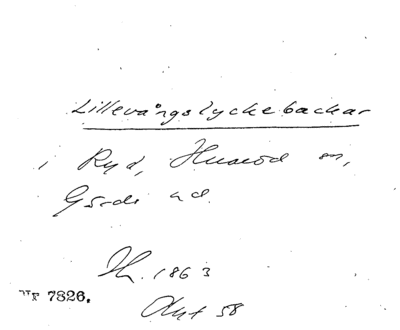 Lillevångslyckebackar
i Ryd, Huaröd sn,
Gärds hd.
Jh. 1863
Akt 58
7826.